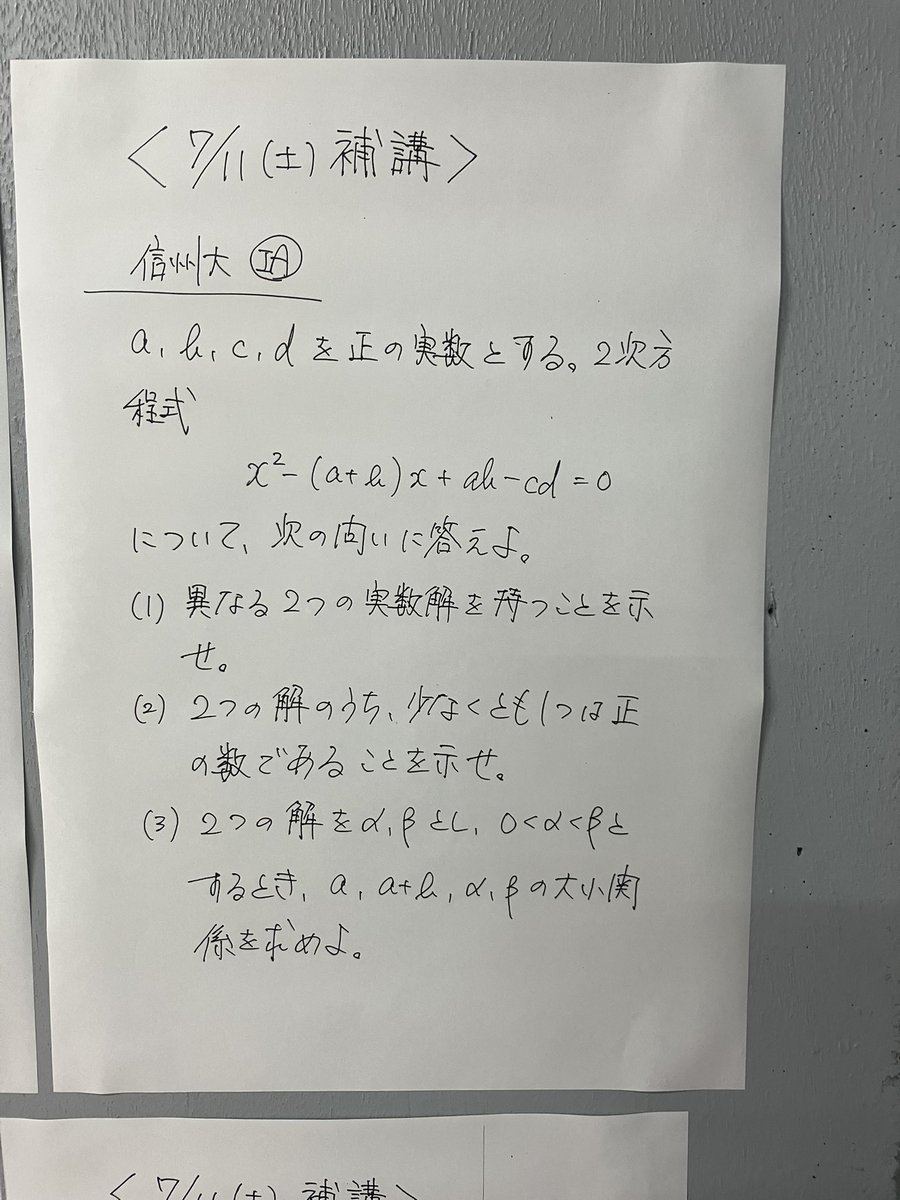 〈 7/11 (土) 補講 〉
信州大 ⅠA
a, b, c, d を正の実数とする。2次方
程式
x² - (a+b)x + ab - cd = 0
について、次の問いに答えよ。
(1) 異なる2つの実数解を持つことを示
せ。
(2) 2つの解のうち、少なくとも1つは正
の数であることを示せ。
(3) 2つの解をα, βとし、0<α<βと
するとき、a, a+b, α, βの大小関
係を求めよ。
〈 7/11 (土) 補講 〉